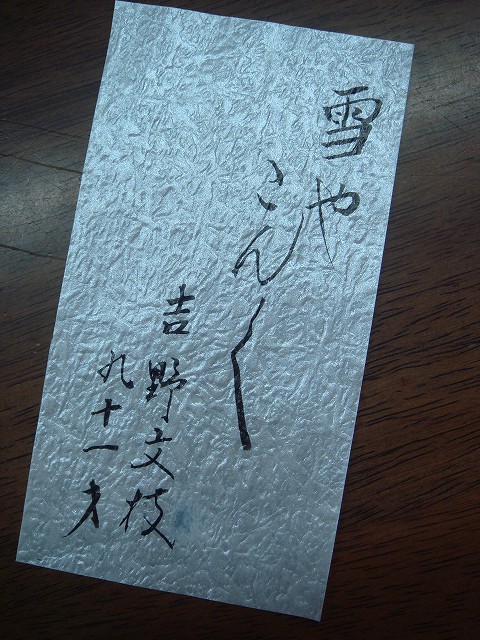 雪や
こん〱
吉野文枝
九十一才